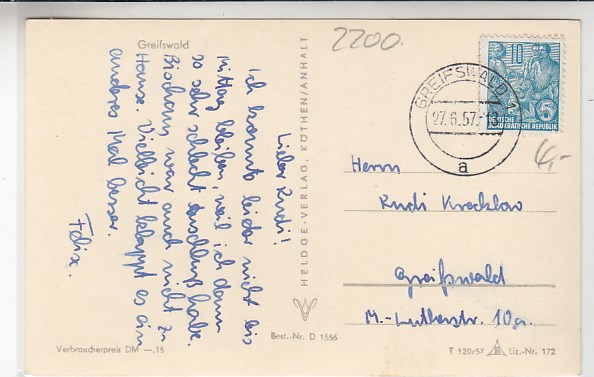 Greifswald
Lieber Rudi!
Ich konnte leider nicht bis
Mittag bleiben, weil ich dann
so sehr schlecht Anschluß habe.
Bischoff war auch nicht zu
Hause. Vielleicht klappt es ein
anderes Mal besser.
Felix.
Verbraucherpreis DM —,15
HELDGE-VERLAG, KÖTHEN/ANHALT
Best.-Nr. D 1556
2200.
10
5
DEUTSCHE
DEMOKRATISCHE REPUBLIK
GREIFSWALD 1
27.6.57.
a
4,-
Herrn
Rudi Krecklow
Greifswald
M.-Lutherstr. 10a.
T 120/57 Liz.-Nr. 172